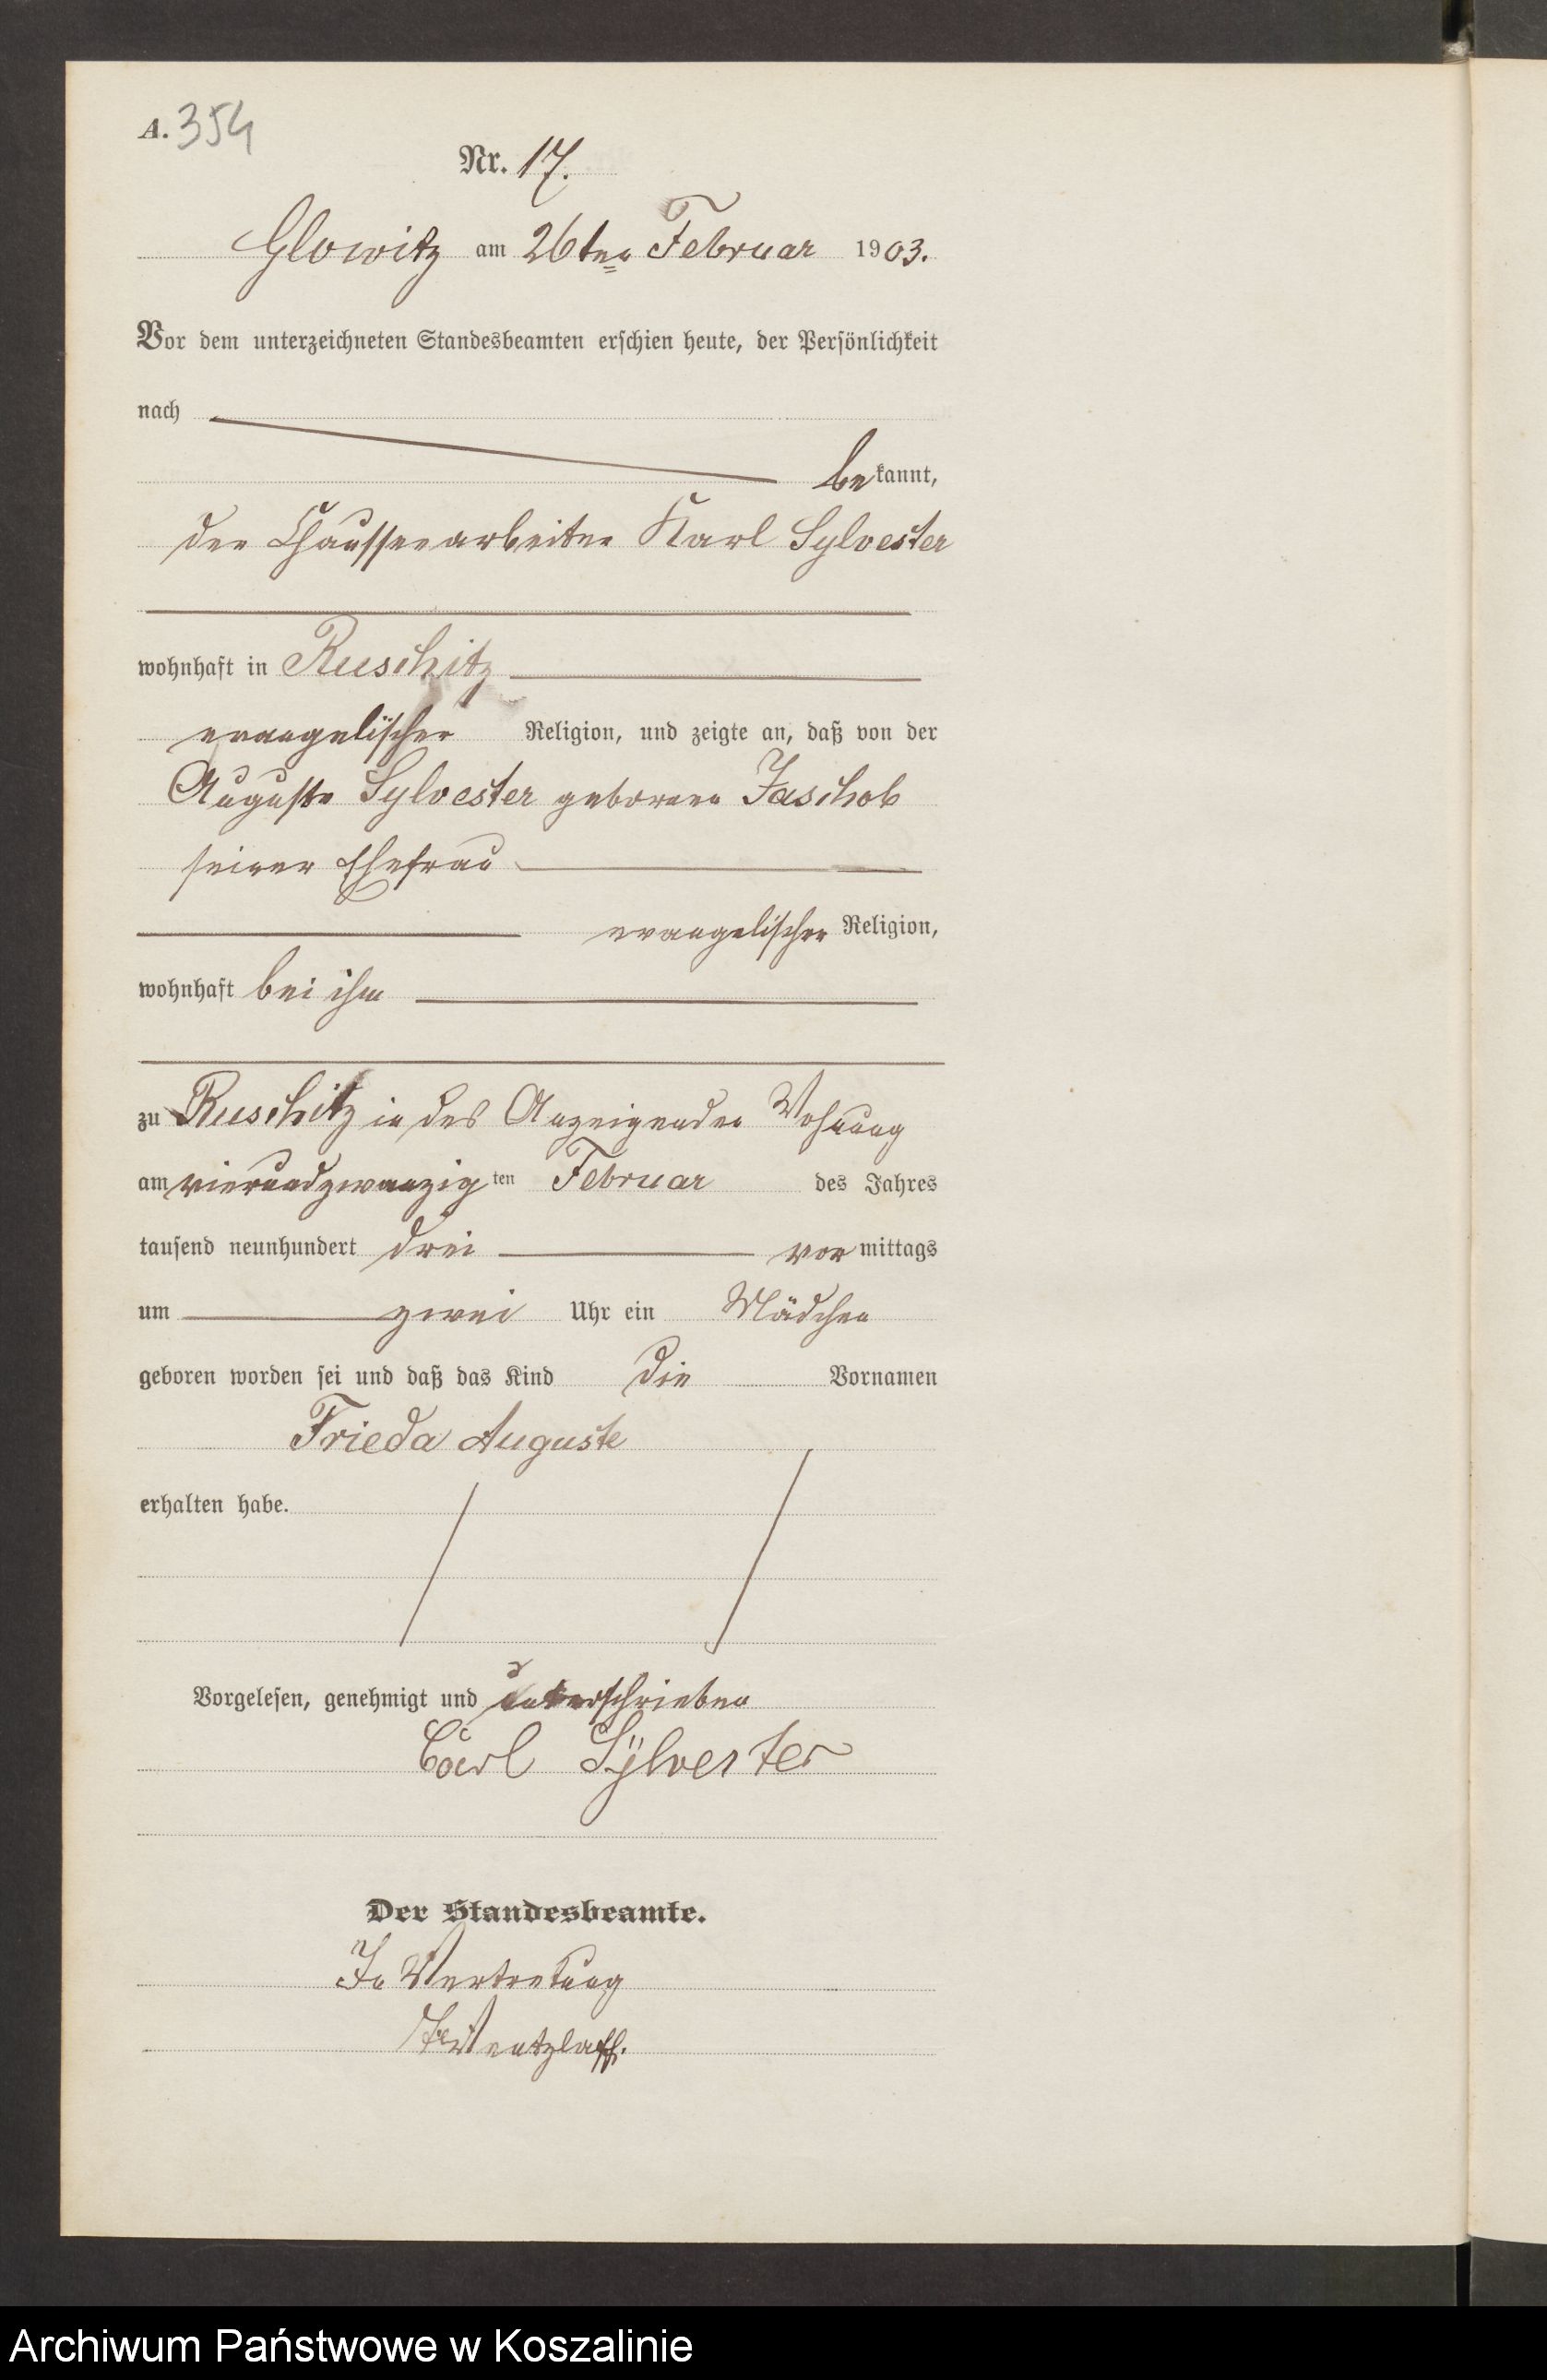 A. 354
Nr. 17.
Glowitz am 26ten Februar 1903.
Vor dem unterzeichneten Standesbeamten erschien heute, der Persönlichkeit
nach
bekannt,
der Chausseearbeiter Karl Sylvester
wohnhaft in Ruschitz
evangelischer Religion, und zeigte an, daß von der
Auguste Sylvester geborene Jaschob
seiner Ehefrau
evangelischer Religion,
wohnhaft bei ihm
zu Ruschitz in des Anzeigenden Wohnung
am vierundzwanzigten Februar des Jahres
tausend neunhundert drei vormittags
um zwei Uhr ein Mädchen
geboren worden sei und daß das Kind die Vornamen
Frieda Auguste
erhalten habe.
Vorgelesen, genehmigt und unterschrieben
Carl Sylvester
Der Standesbeamte.
In Vertretung
Wentzlaff.
Archiwum Państwowe w Koszalinie